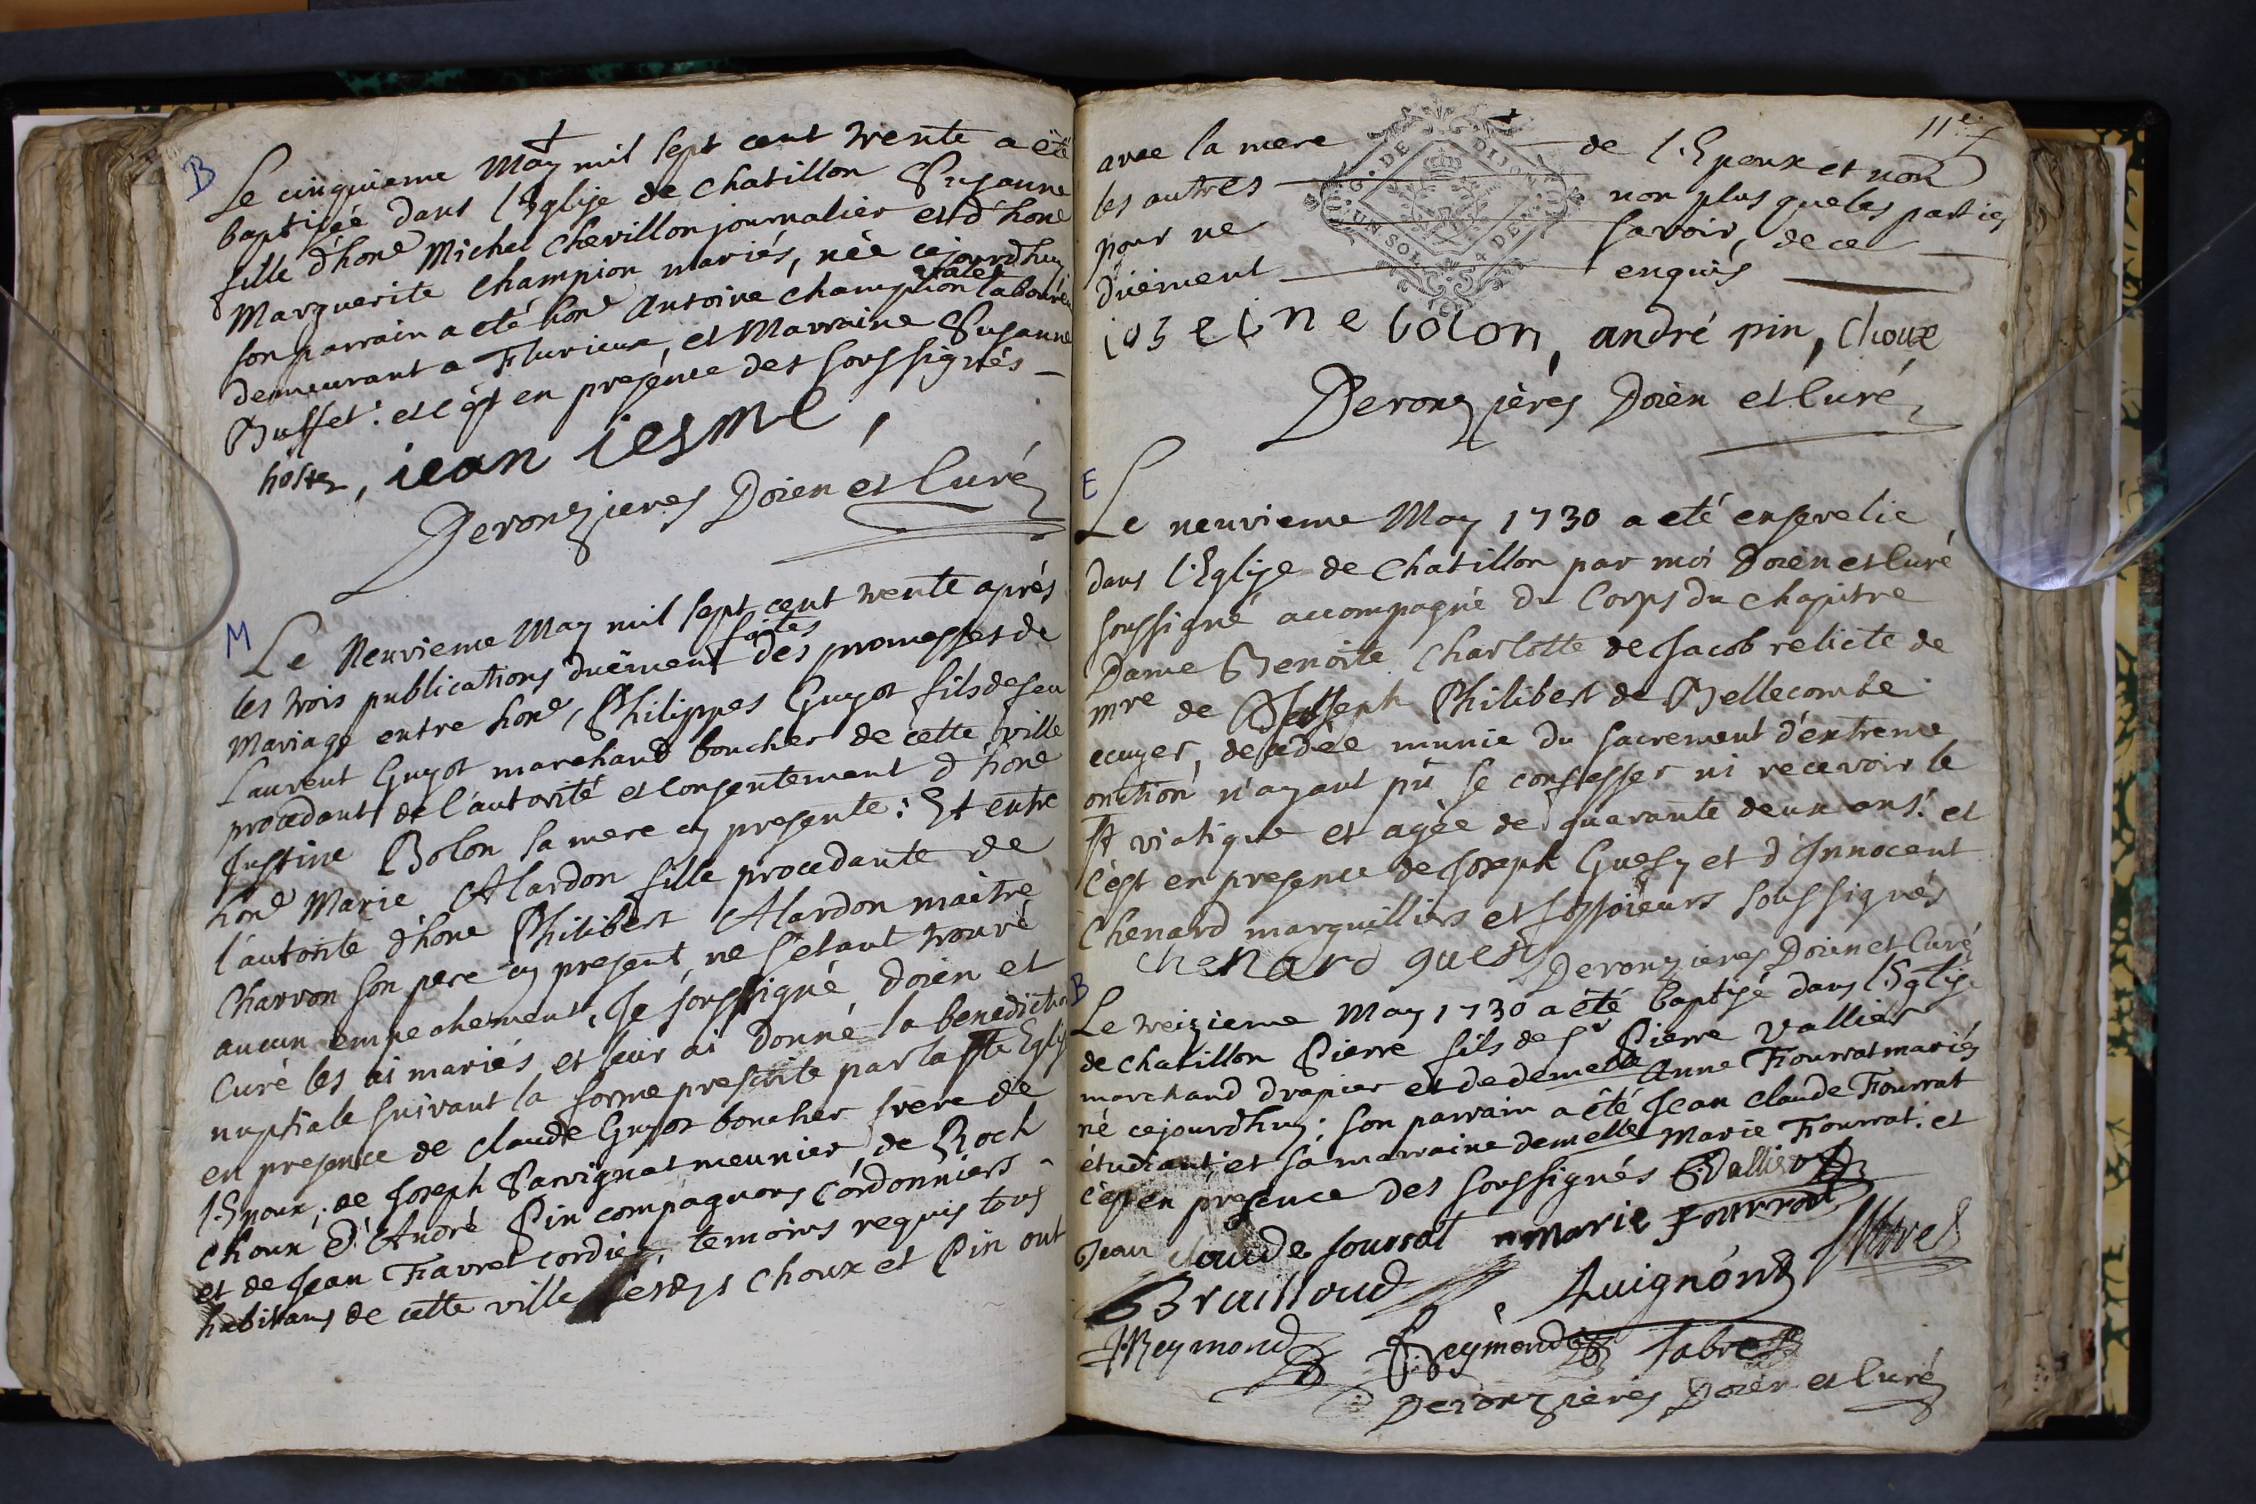 B
Le cinquieme May mil sept cent trente a été
baptisée dans l'Eglise de Chatillon Susanne
fille d'hone Michel Chevillon journalier et d'hone
Marguerite Champion mariés, née cejourdhuy
son parrain a eté hone Antoine Champion valet laboureur
demeurant a Flurieux, et Marraine Susanne
Buffet. et c'est en presence des soussignés
hoste, iean iesme,
Deronzieres Doien et Curé
M
Le Neuvieme May mil sept cent trente aprés
les trois publications duëment faites des promesses de
Mariage entre hone, Philippes Guyot fils de feu
Laurent Guyot marchand boucher de cette ville
procedant de l'autorité et consentement d'hone
Justine Bolon sa mere cy presente: Et entre
hone Marie Alardon fille procedante de
l'autorite d'hone Philibert Alardon maitre
Charron son pere cy present, ne s'etant trouvé
aucun empechement, Je soussigné, doien et
Curé les ai mariés, et leur ai donné la benediction
nuptiale suivant la forme prescrite par la ste Eglise
en presence de claude Guyot boucher frere de
l'Epoux, de Joseph Parvignat meunier, de Roch
Choux d'André Pin compagnons Cordonniers
et de Jean Favret cordier, temoins requis tous
habitans de cette ville lesdys Choux et Pin ont
11e
avec la mere de l'Epoux et non
les autres non plus que les parties
pour ne savoir, de ce
düement enquis
G. DE DIJON
UN SOL 4 DE
iosetine bolon, andré pin, Choux
Deronzières Doïen et Curé
E
Le neuvieme May 1730 a eté ensevelie
dans l'Eglise de Chatillon par moi Doïen et Curé
soussigné accompagné du Corps du chapitre
Dame Benoite Charlotte de Jacob relicte de
mre de Joseph Philibert de Bellecombe
ecuyer, decedée munie du sacrement d'extreme
onction n'ayant pû se confesser ni recevoir le
st viatique et agée de quarante deux ans. et
c'est en presence de Joseph Guesy et d'Innocent
Chenard marguilliers et fossoïeurs soussignés
chenard guesy Deronzieres Doien et Curé
B
Le treizieme May 1730 a été baptisé dans l'Eglise
de chatillon Pierre fils de sr Pierre Vallier
marchand drapier et de demelle Anne Fourrat mariés
né cejourdhuy; son parrain a été Jean Claude Fourrat
étudiant, et sa marraine demelle Marie Fourrat. et
c'est en presence des soussignés P. Vallier
Jean claude fourrat marie Fourrat
Braillard Avignon
J Reymond Reymond fabre
Deronzières Doïen et Curé